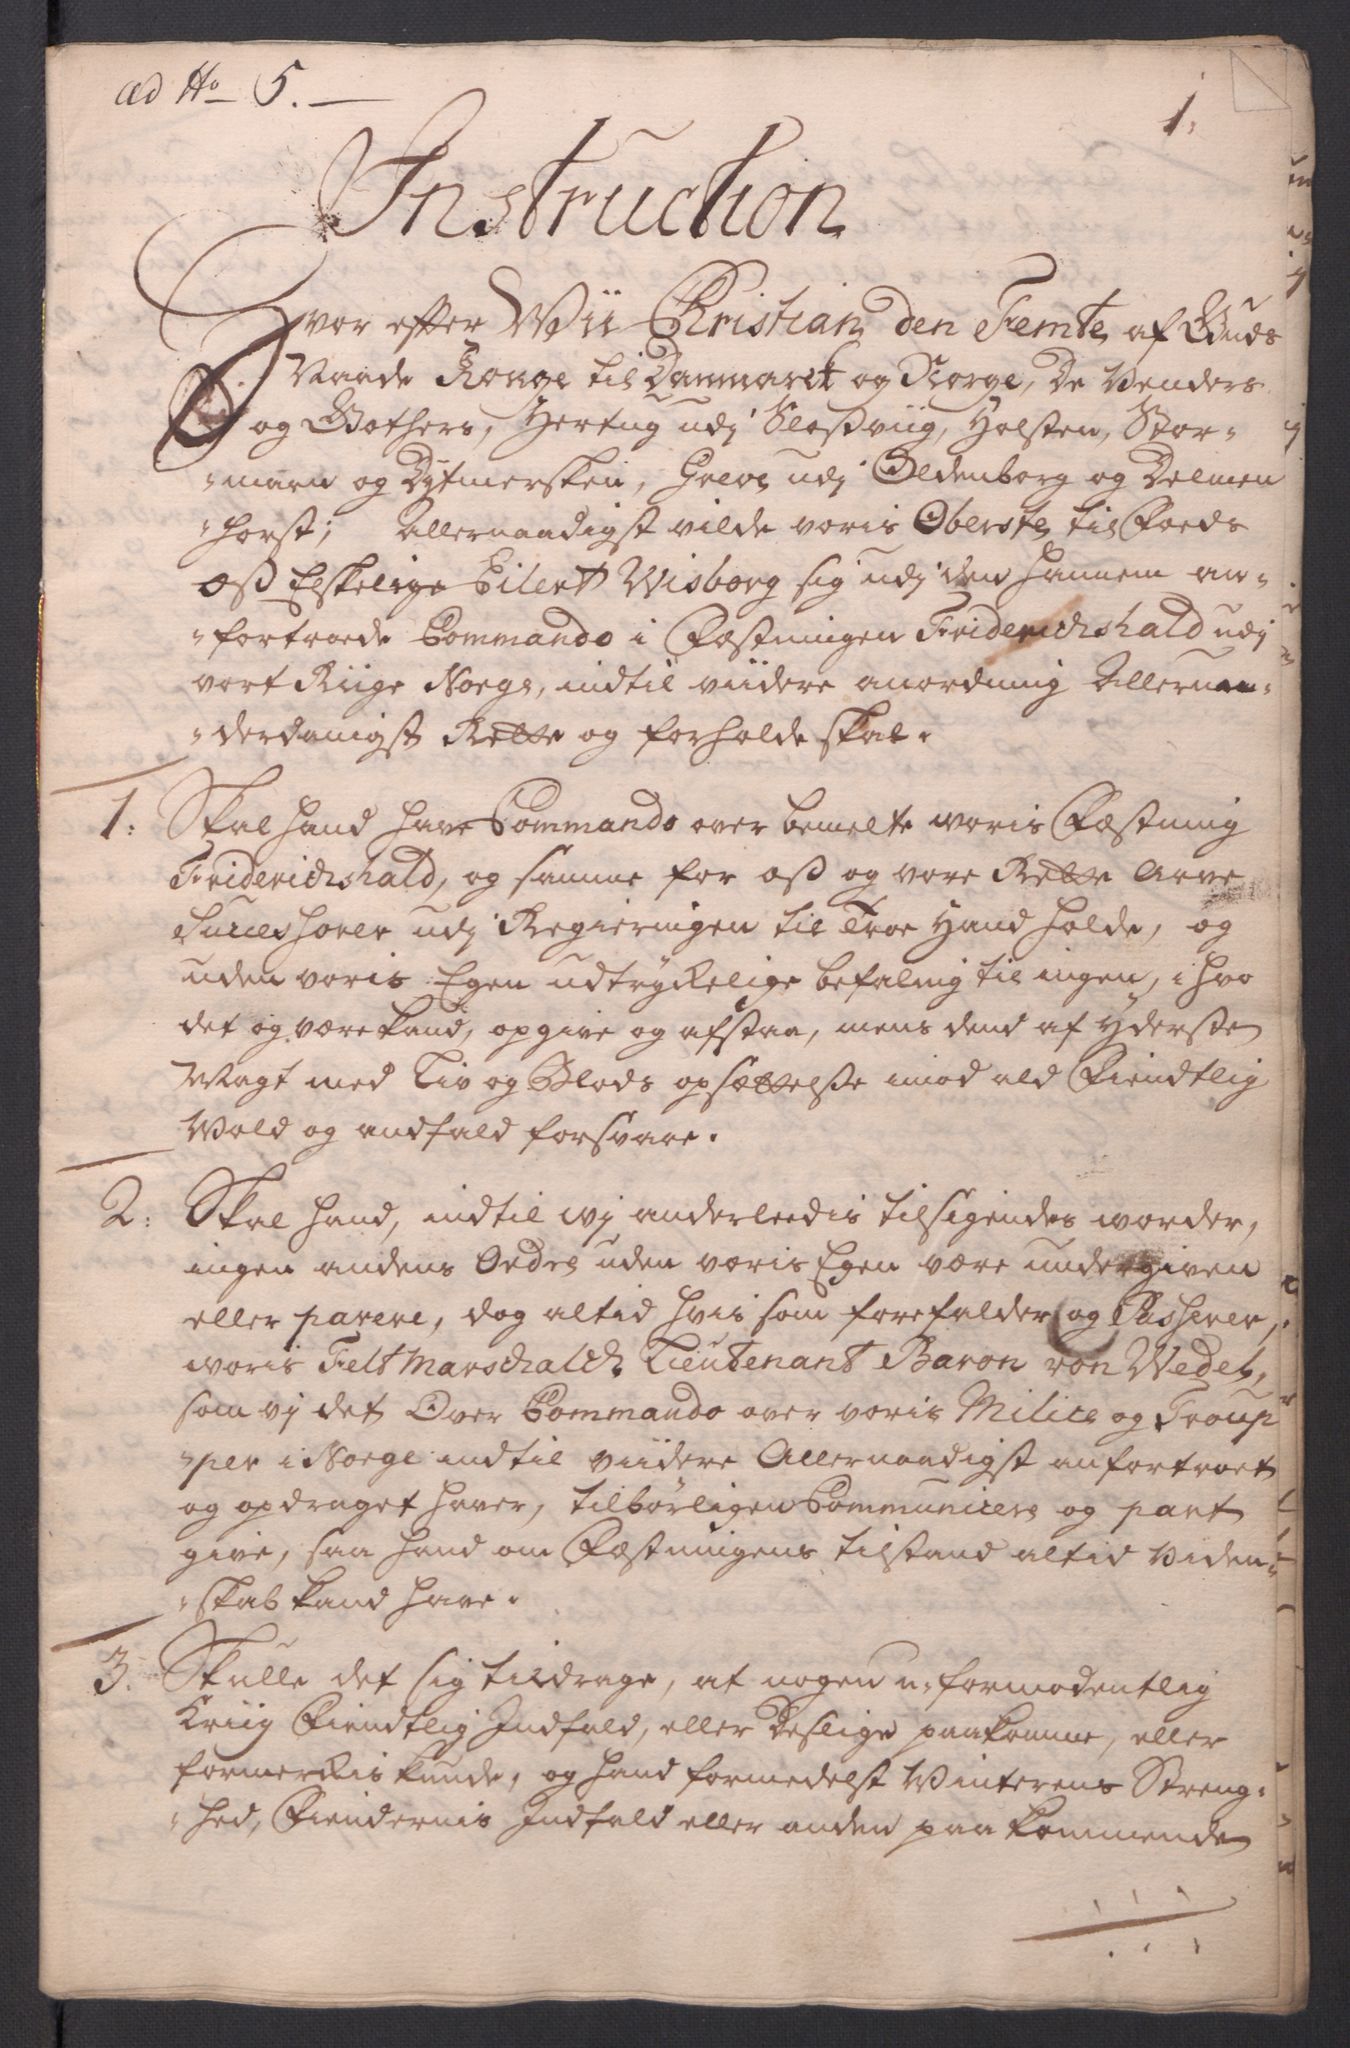 ad No 5.
1.
Instruction
Hvor efter Wii Christian den Femte af Guds
Naade Konge til Danmarck og Norge, De Venders
og Gothers, Hertug udj Sleßviig, Holsten, Stor-
-marn og Dytmersken, Greve udj Oldenborg og Delmen
-horst; Allernaadigst vilde voris Oberste til Foeds
oß Elskelige Eilert Wisborg sig udj den hannem an-
-fortroede Commando i Fæstningen Friderichshald udj
vort Riige Norge, indtil viidere anordning Allerun-
-derdanigst Rette og forholde skal.
1: Skal hand have Commando over bemelte woris Fæstning
Friderichshald, og samme for oß og vore Rette Arve
Successorer udj Regieringen til Troe Hand holde, og
uden voris Egen udtryckelige befaling til ingen, i hvo
det og være kand, opgive og afstaa, mens dend af yderste
Magt med Liv og Blods opsættelße imod ald Fiendtlig
Vold og andfald forsvare.
2: Skal hand, indtil wj anderleedis tilsigendes worder,
ingen andens Ordre uden voris Egen være undergiven
eller parere, dog altid hvis som forefalder og Passerer,
woris Felt Marschalck Lieutenant Baron von Wedel,
som vj det Over Commando over voris Milice og Troup
-per i Norge indtil viidere Allernaadigst anfortroet
og opdraget haver, tilbørligen Communicere og part
give, saa hand om Fæstningens tilstand altid Viden-
-skab kand have.
3. Skulle det sig tildrage, at nogen u-formodentlig
Kriig Fiendtlig Indfald, eller deslige paakomme, eller
formerckis kunde, og hand formedelst Vinterens Streng-
-hed, Fiendernis Indfald eller anden paa kommende